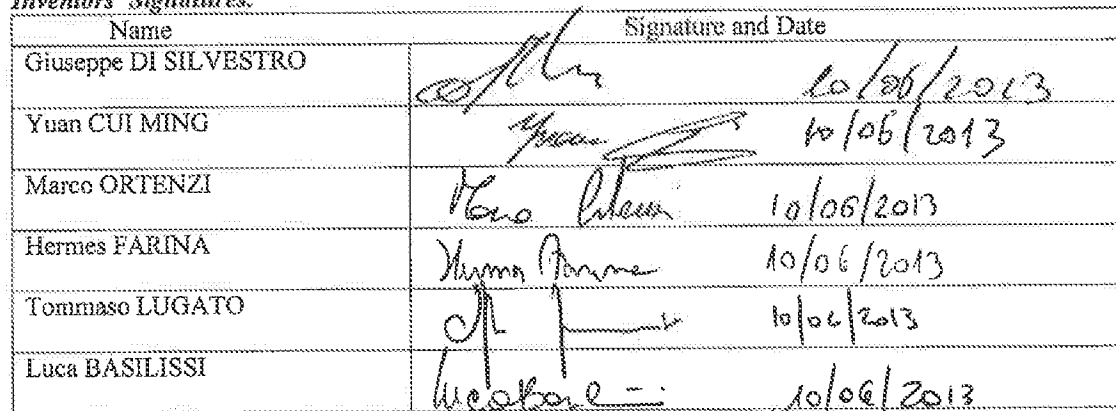 Inventors' Signatures:
Name Signature and Date
Giuseppe DI SILVESTRO 10/06/2013
Yuan CUI MING Yuan 10/06/2013
Marco ORTENZI Marco Ortenzi 10/06/2013
Hermes FARINA Hermes Farina 10/06/2013
Tommaso LUGATO 10/06/2013
Luca BASILISSI 10/06/2013